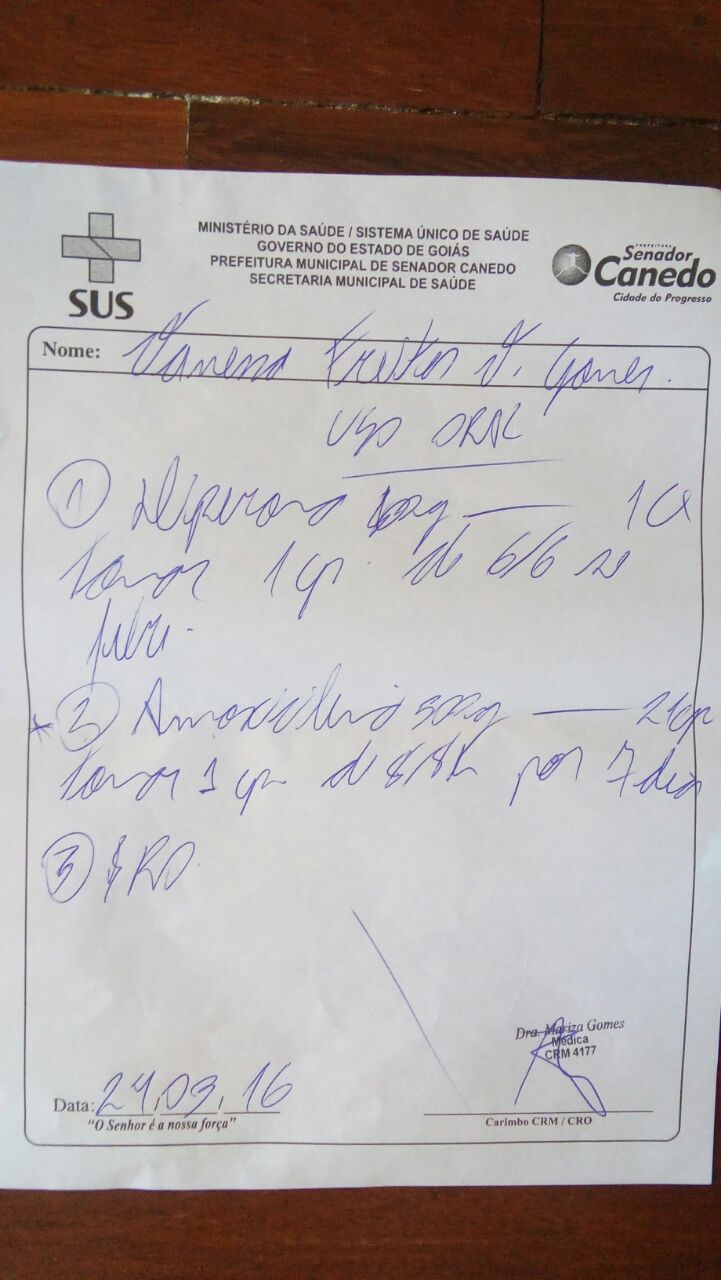 MINISTÉRIO DA SAÚDE / SISTEMA ÚNICO DE SAÚDE
GOVERNO DO ESTADO DE GOIÁS
PREFEITURA MUNICIPAL DE SENADOR CANEDO
SECRETARIA MUNICIPAL DE SAÚDE
SUS
PREFEITURA
Senador
Canedo
Cidade do Progresso
Nome: Vanessa Freitas V. Gomes.
USO ORAL
1 Dipirona 1 cx
tomar 1 cp de 6/6 se
febre.
2 Amoxicilina 500mg 21 cp
tomar 1 cp de 8/8h por 7 dias
3 SRO
Dra. Mariza Gomes
Médica
CRM 4177
Data: 24, 03, 16
"O Senhor é a nossa força"
Carimbo CRM / CRO